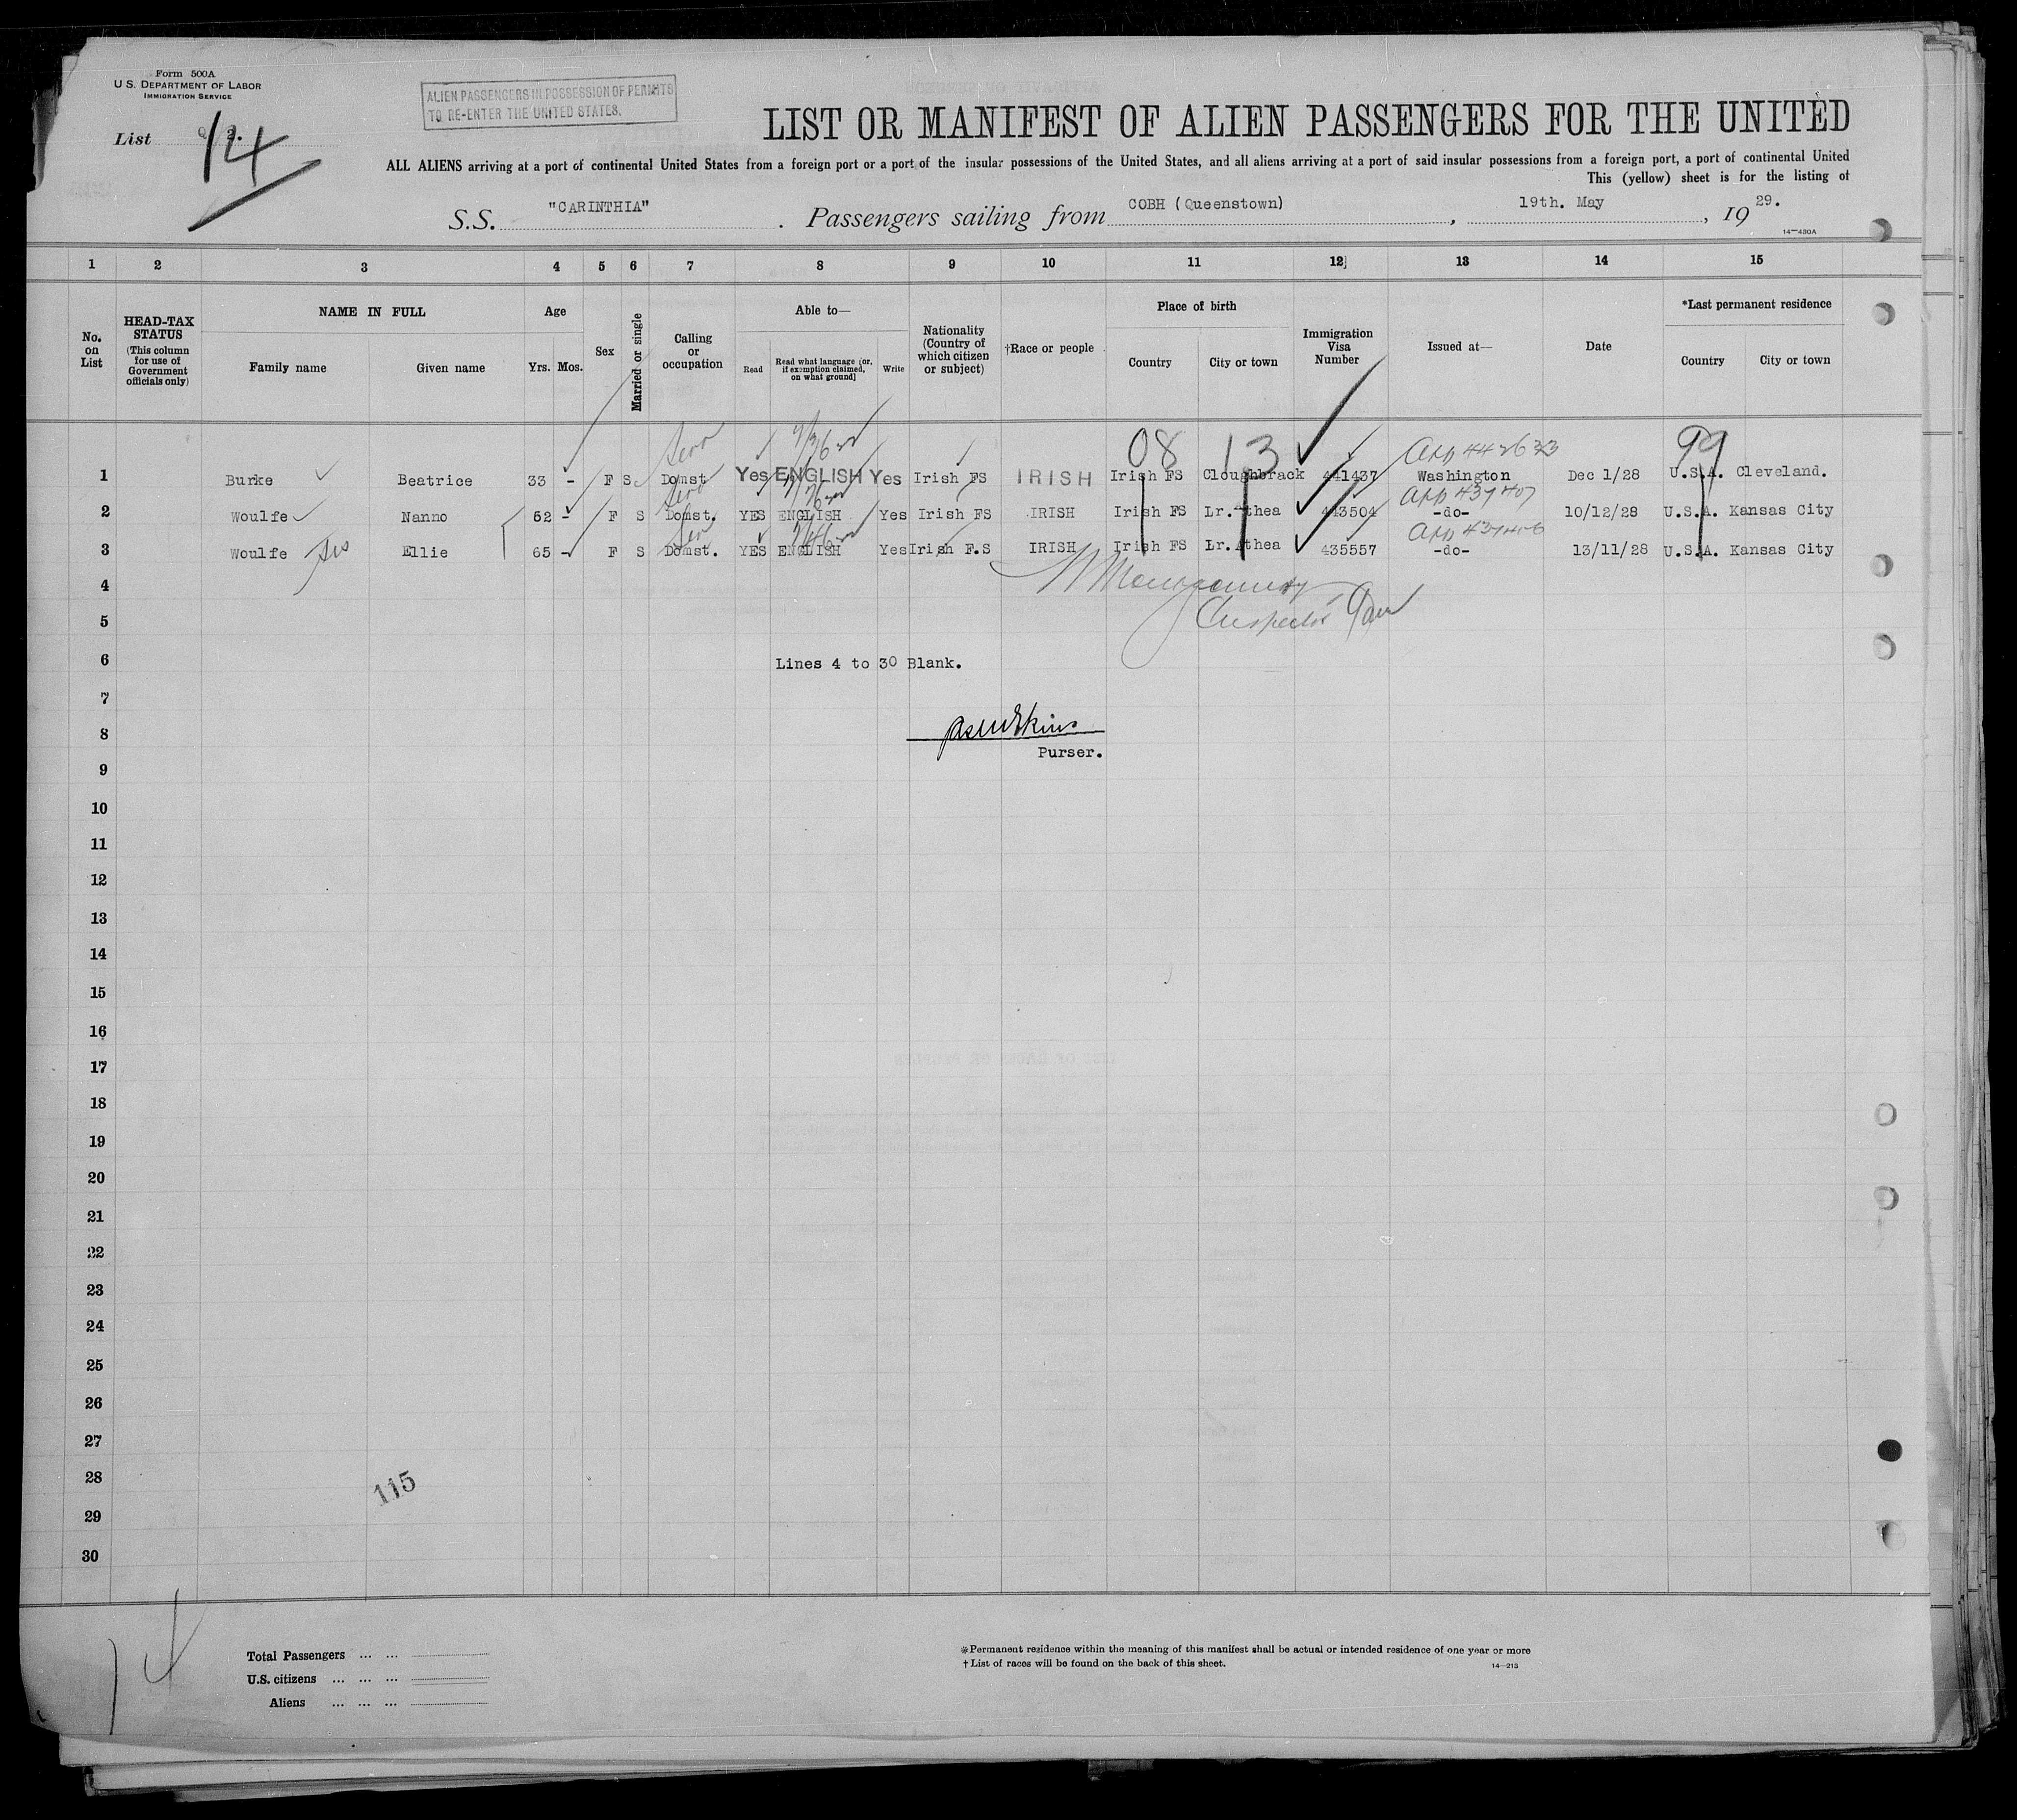 Form 500A
U.S. DEPARTMENT OF LABOR
IMMIGRATION SERVICE
ALIEN PASSENGERS IN POSSESSION OF PERMITS
TO RE-ENTER THE UNITED STATES.
List 14
LIST OR MANIFEST OF ALIEN PASSENGERS FOR THE UNITED
ALL ALIENS arriving at a port of continental United States from a foreign port or a port of the insular possessions of the United States, and all aliens arriving at a port of said insular possessions from a foreign port, a port of continental United
This (yellow) sheet is for the listing of
S.S. "CARINTHIA" . Passengers sailing from COBH (Queenstown) , 19th. May , 19 29.
14—430A
1 2 3 4 5 6 7 8 9 10 11 12 13 14 15
No. on List
HEAD-TAX STATUS
(This column for use of Government officials only)
NAME IN FULL
Family name Given name
Age
Yrs. Mos.
Sex
Married or single
Calling or occupation
Able to—
Read
Read what language [or, if exemption claimed, on what ground]
Write
Nationality (Country of which citizen or subject)
†Race or people
Place of birth
Country City or town
Immigration Visa Number
Issued at—
Date
*Last permanent residence
Country City or town
08 13 99
App 442633
1 Burke Beatrice 33 - F S Domst Yes ENGLISH Yes Irish FS IRISH Irish FS Cloughbrack 441437 Washington Dec 1/28 U.S.A. Cleveland.
App 437407
2 Woulfe Nanno 52 - F S Domst. YES ENGLISH Yes Irish FS IRISH Irish FS Lr. Athea 443504 -do- 10/12/28 U.S.A. Kansas City
App 437406
3 Woulfe Ellie 65 - F S Domst. YES ENGLISH Yes Irish F.S IRISH Irish FS Lr. Athea 435557 -do- 13/11/28 U.S.A. Kansas City
4
Montgomery
5
Inspector
6 Lines 4 to 30 Blank.
7
8
Purser.
9
10
11
12
13
14
15
16
17
18
19
20
21
22
23
24
25
26
27
28
115
29
30
Total Passengers ... ...
U.S. citizens ... ... ...
Aliens ... ... ...
*Permanent residence within the meaning of this manifest shall be actual or intended residence of one year or more
†List of races will be found on the back of this sheet.
14—213